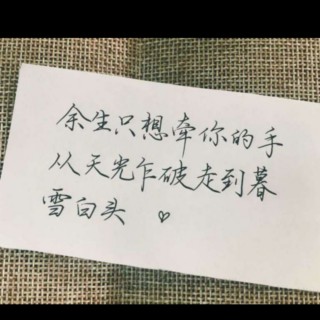 余生只想牵你的手
从天光乍破走到暮
雪白头 ♡